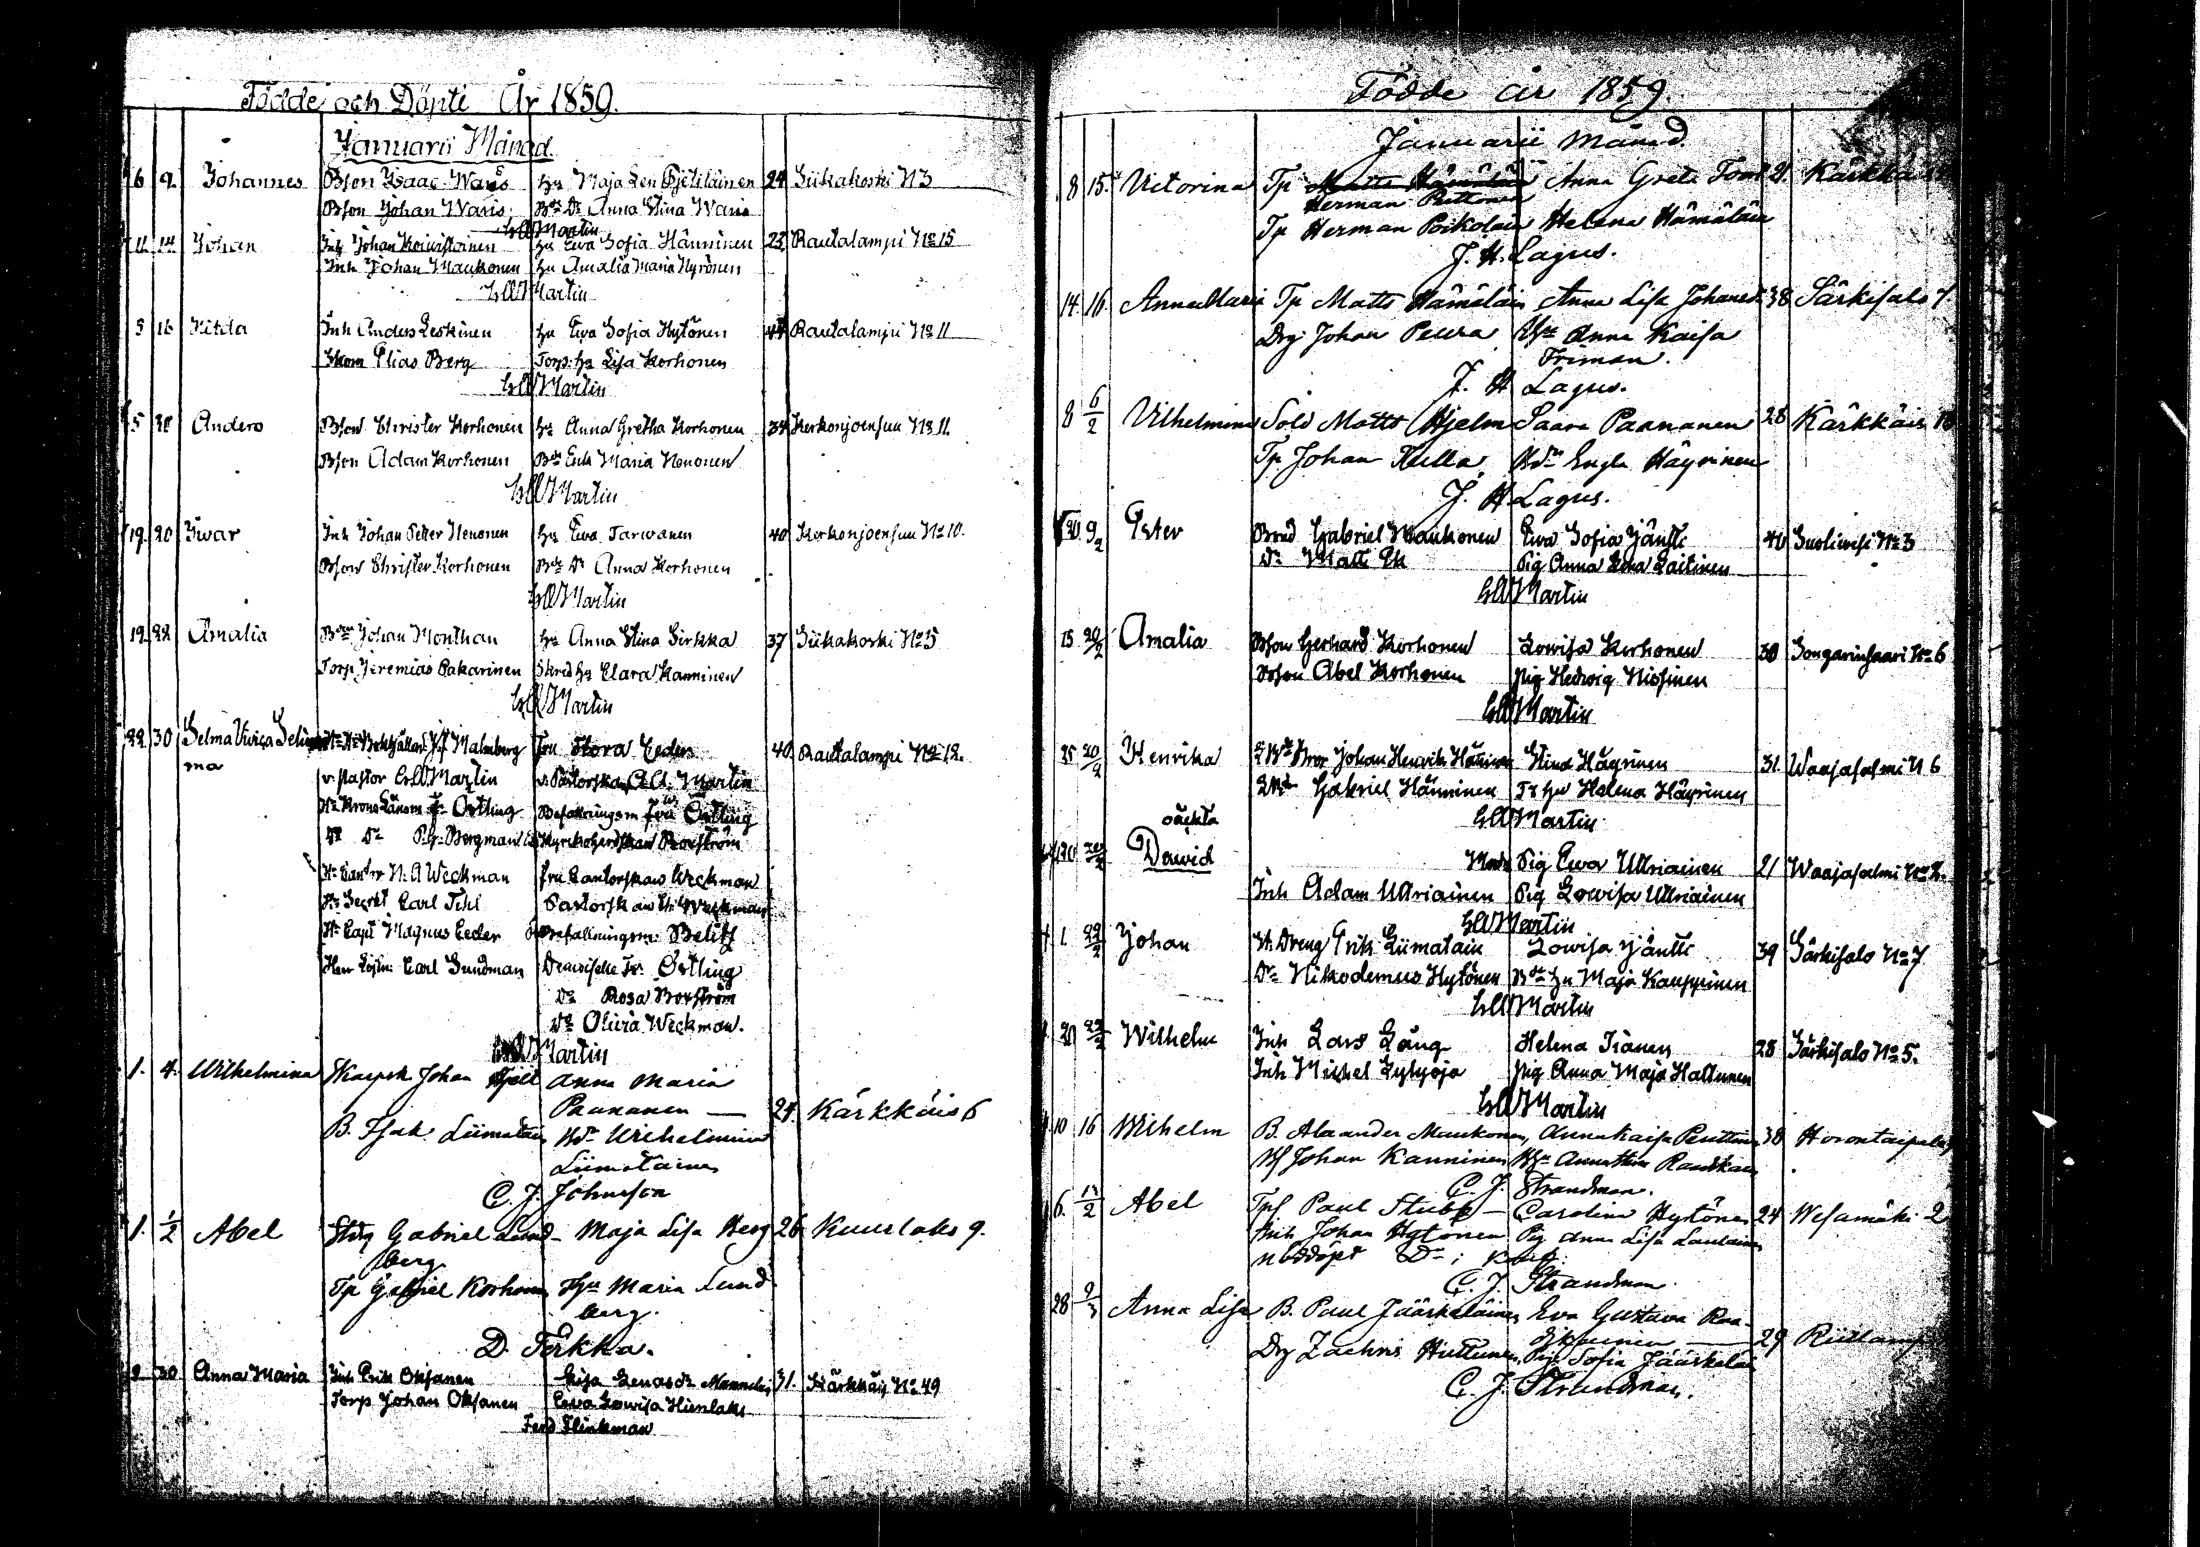 Födde och Döpte År 1859.
Januarii Månad.
6 9. Johannes Bson Isaac Waris Hu Maja Len Pjetiläinen 24 Siikakoski N 3
Bson Johan Waris Bde Dr Anna Stina Waris
Martin
11 14 Johan Inh Johan Koivistoinen Hu Ewa Sofia Hänninen 25 Rautalampi No 15
Inh Johan Maukonen Hu Amalia Maria Hyvönen
Martin
5 16 Hilda Inh Anders Leskinen Hu Ewa Sofia Hytönen 44 Rautalampi No 11
Skom Elias Berg Torp. Hu Lisa Korhonen
Martin
15 Anders Bson Christer Korhonen Hu Anna Gretha Korhonen 34 Kerkonjoensuu No 11.
Bson Adam Korhonen Bde Enk Maria Nenonen
Martin
19. 20 Iwar Inh Johan Petter Nenonen Hu Ewa Tarwanen 40 Kerkonjoensuu No 10.
Bson Christer Korhonen Bde Dr Anna Korhonen
Martin
19 22 Amalia Johan Monthan Hu Anna Stina Sirkka 37 Siikakoski No 5
Torp Jeremias Pakarinen Skred Hu Clara Kanninen
Martin
22 30 Selma Viviça
ma Malmberg Fru Flora Ceder 40. Rautalampi No 12.
v. Pastor Martin v. Pastorskan A. A. Martin
Hr Krono Länsm Östling Befallningsm fru Östling
Dr Dr Bergman Kyrkoherdskan Boxström
Hr Cantor N. A Weckman fru Cantorskan Weckman
Hr Secret Carl Fihl Pastorskan Weckman
Hr Capt Magnus Ceder Befallningsm: Belitz
Herr Carl Sundman Demoiselle Östling
Do Rosa Boxström
Do Olivia Weckman.
Martin
1. 4. Wilhelmina Skarpsk Johan Fjell Anna Maria
Paananen — 24. Kärkkäis 6
B. Isak Liimatain Hdr Wilhelmina
Liimatainen
C. J. Johnsson
1. 1/2 Abel Gabriel Lund- Maja Lisa Berg 26 Kuurlaks 9.
berg
Tp Gabriel Korhonen Hu Maria Lund
berg.
D. Ferkka.
9 30 Anna Maria Inh Erik Oksanen Lisa 31. Kärkkäis No 49
Torp Johan Oksanen Ewa Lowisa Hinnlaks
Ferd Flinkman
Födde år 1859.
Januarii Månd.
8 15. Victorina Tp Matts Hämäläin Anna Greta 21. Kärkkäis
Herman Puttonen
Tp Herman Poikolain Helena Hämäläin
J. H. Lagus.
14. 16. Anna Maria Tp Matts Hämäläin Anna Lisa Johansd. 38 Särkisalo 7.
Drg Johan Peura Anna Kaisa
Friman.
J. H Lagus.
8 6/2 Vilhelmina Sold Matts Hjelm Saara Paananen 28 Kärkkäis
Tp Johan Kulla Engla Häyrinen
J. H Lagus.
20 9/2 Ester Bond Gabriel Maukonen Ewa Sofia Jäntti 40 Suoliwesi No 3
Dr Matts Ek Pig Anna Lena Laitinen
Martin
15 20/2 Amalia Bson Gerhard Korhonen Lowisa Korhonen 30 Songarinsaari No 6
Bson Abel Korhonen Pig Hedwig Nissinen
Martin
25 20/2 Henrika Johan Henrik Hänninen Stina Häyrinen 31. Waajasalmi N 6
Gabriel Hänninen Tr Hu Helena Häyrinen
Martin
oäckta
20 20/2 Dawid Mod. Pig Ewa Ulriainen 21 Waajasalmi No 2.
Inh Adam Ulriainen Pig Lowisa Ulriainen
Martin
1 22/2 Johan St. Dreng Erik Liimatain Lowisa Jäntti 39 Särkisalo No 7
Dr Nikodemus Hytönen Bde Hu Maja Kauppinen
Martin
20 22/2 Wilhelm Inh Lars Lång Helena Tiänen 28 Särkisalo No 5.
Inh Michel Lylyoja Pig Anna Maja Hattunen
Martin
10 16 Wilhelm B. Alexander Maukonen, Anna Kaisa Puttonen 38 Horontaipale
Johan Kanninen Anna Stina
C. J. Strandman.
6. 13/2 Abel Tpf Paul Stubb — Carolina Hytönen 24 Wesamäki 2
Inh Johan Hytönen Pig Anna Lisa Lautainen
Nöddöpt Dr;
C. J. Strandman.
28 Anna Lisa B. Paul Jääskeläinen Eva Gustava Raa-
tikainen — 29 Riitlamp
Drg Zachris Huttunen, Pig Sofia Jääskeläi
C. J. Strandman.